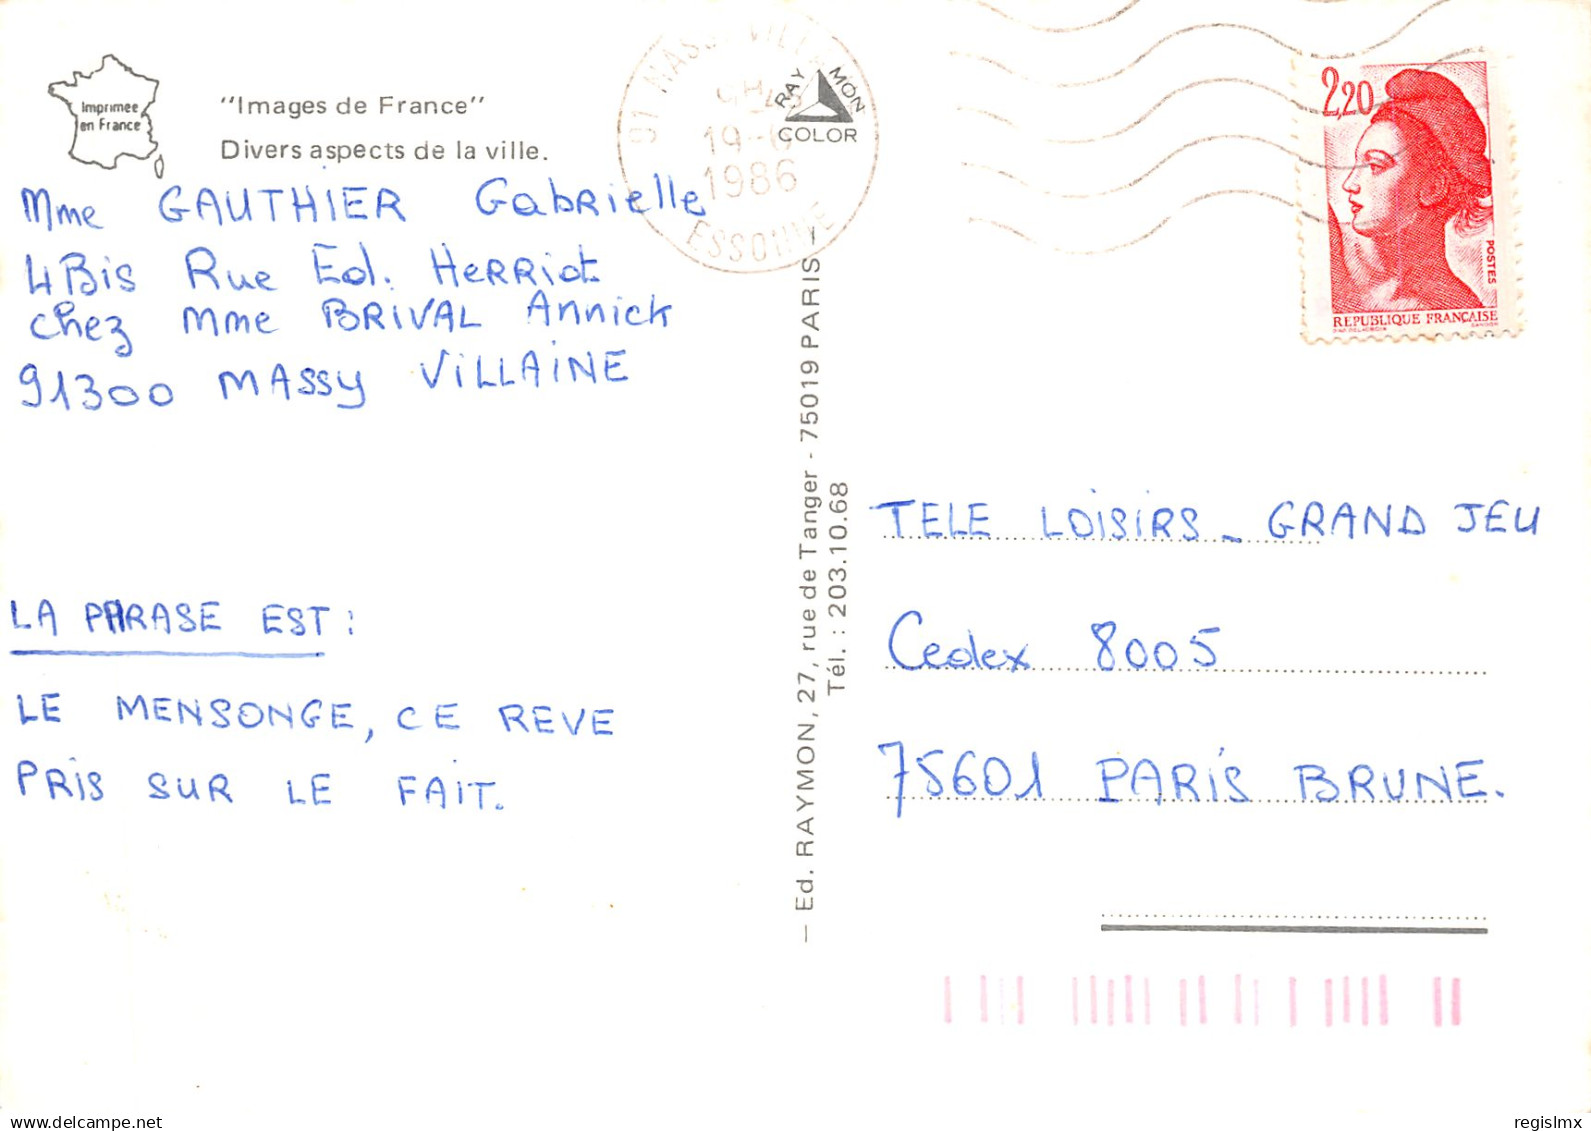 Imprimée
en France
"Images de France"
Divers aspects de la ville.
Mme GAUTHIER Gabrielle
4 Bis Rue Ed. Herriot
chez Mme BRIVAL Annick
91300 MASSY VILLAINE
LA PHRASE EST :
LE MENSONGE, CE REVE
PRIS SUR LE FAIT.
91 MASSY VILLAINE
19-6
1986
ESSONNE
RAYMON
COLOR
— Ed. RAYMON, 27, rue de Tanger - 75019 PARIS
Tél. : 203.10.68
2,20
POSTES
REPUBLIQUE FRANÇAISE
TELE LOISIRS - GRAND JEU
Cedex 8005
75601 PARIS BRUNE.
regislmx